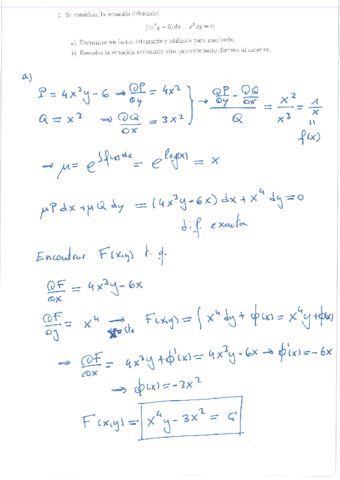 1. Se considera la ecuación diferencial
(4x²y − 6) dx + x³ dy = 0
a) Encuentra un factor integrante y utilízalo para resolverla.
b) Resuelve la ecuación utilizando otro procedimiento distinto al anterior.
a)
P = 4x²y - 6 → ∂P/∂y = 4x²
Q = x³ → ∂Q/∂x = 3x²
→ (∂P/∂y - ∂Q/∂x)/Q = x²/x³ = 1/x
= f(x)
→ μ = e^∫f(x)dx = e^log(x) = x
μPdx + μQdy = (4x³y - 6x) dx + x⁴ dy = 0
dif. exacta
Encontrar F(x,y) t.q.
∂F/∂x = 4x³y - 6x
∂F/∂y = x⁴ → F(x,y) = ∫ x⁴ dy + φ(x) = x⁴y + φ(x)
x = cte
→ ∂F/∂x = 4x³y + φ'(x) = 4x³y - 6x → φ'(x) = -6x
→ φ(x) = -3x²
F(x,y) = x⁴y - 3x² = C₁